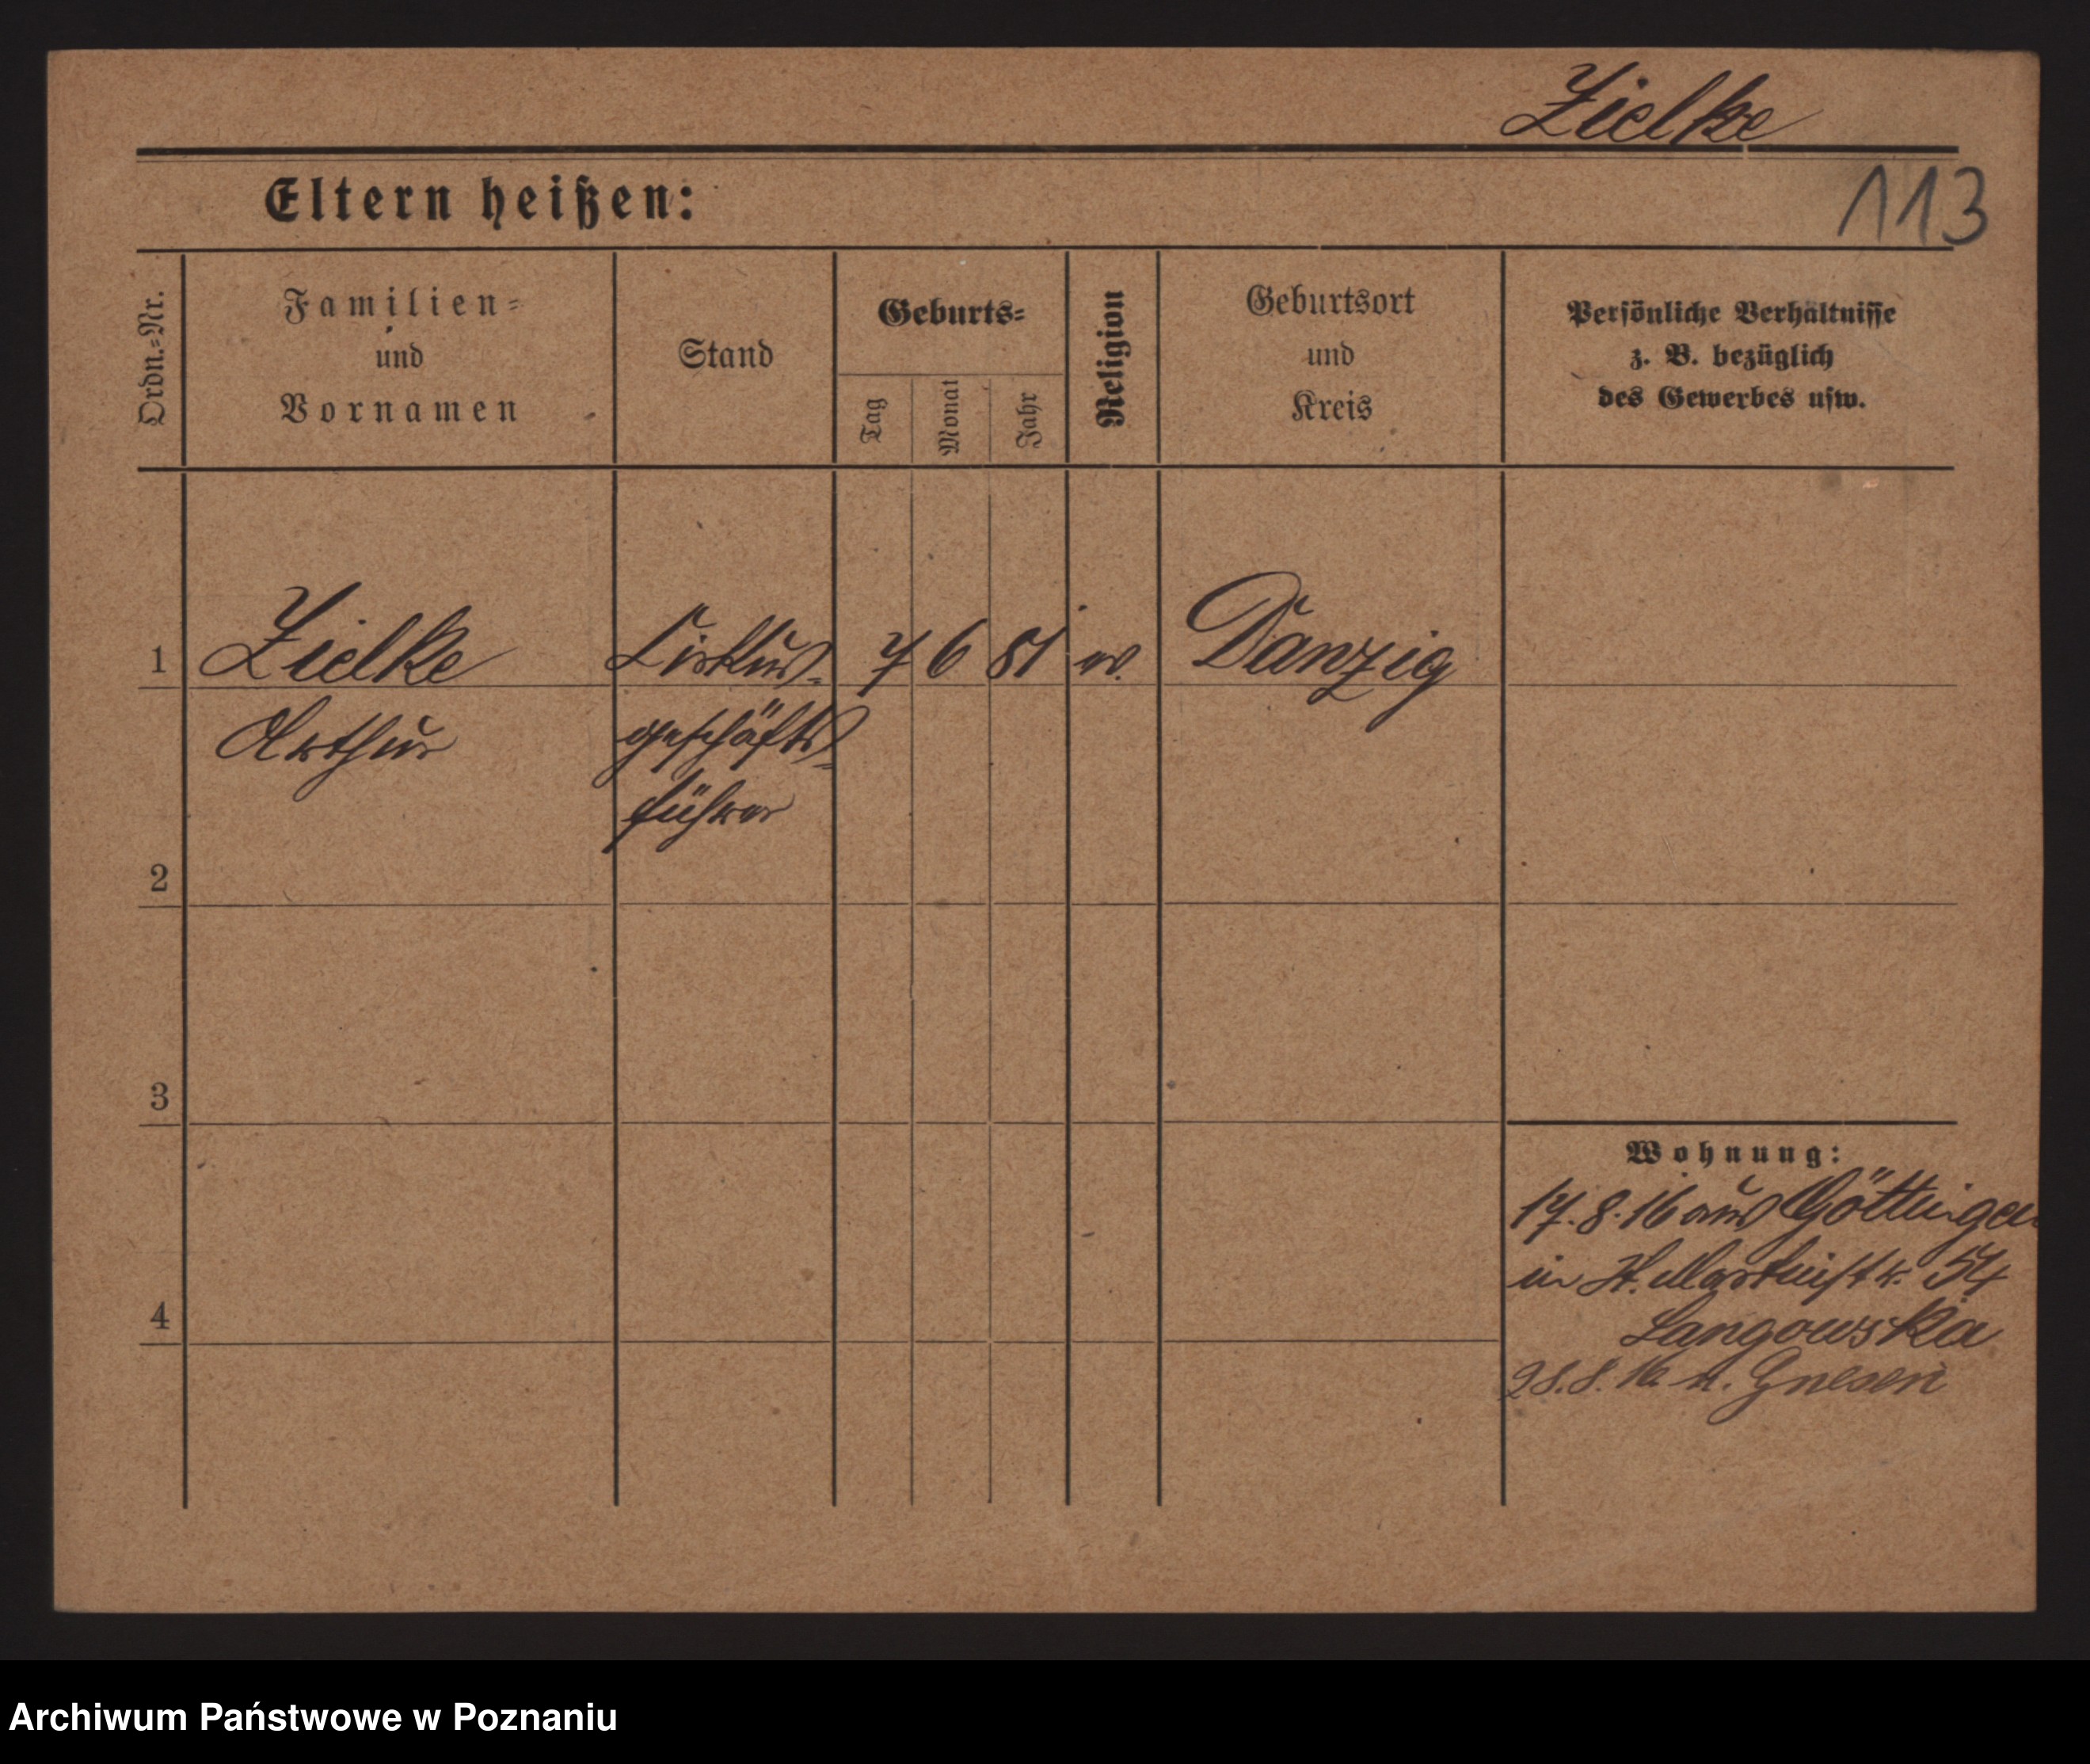 Zielke
113
Eltern heißen:
Ordn.-Nr.
Familien-
und
Vornamen
Stand
Geburts-
Tag
Monat
Jahr
Religion
Geburtsort
und
Kreis
Persönliche Verhältnisse
z. B. bezüglich
des Gewerbes usw.
1
Zielke
Cirkus-
7
6
81
ev.
Danzig
Arthur
geschäfts-
führer
2
3
4
Wohnung:
17.8.16 aus Göttingen
in St. Martinstr. 54
Langowska
28.8.16 n. Gnesen
Archiwum Państwowe w Poznaniu